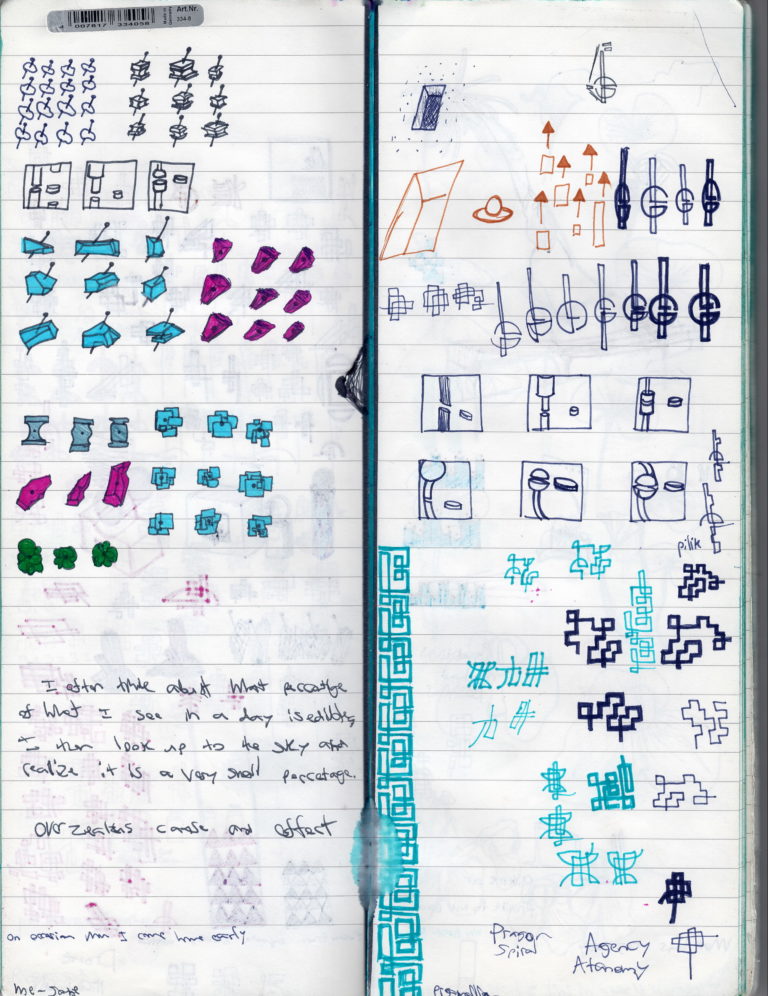 Art.Nr.
334-8
Made in Germany
4 007817 334058
I often think about what percentage
of what I see in a day is edible,
I then look up to the sky and
realize it is a very small percentage.
Overzealous cause and effect
on occasion when I come home early
me-
pilik
Prason
Spiral
Agency
Atonomy